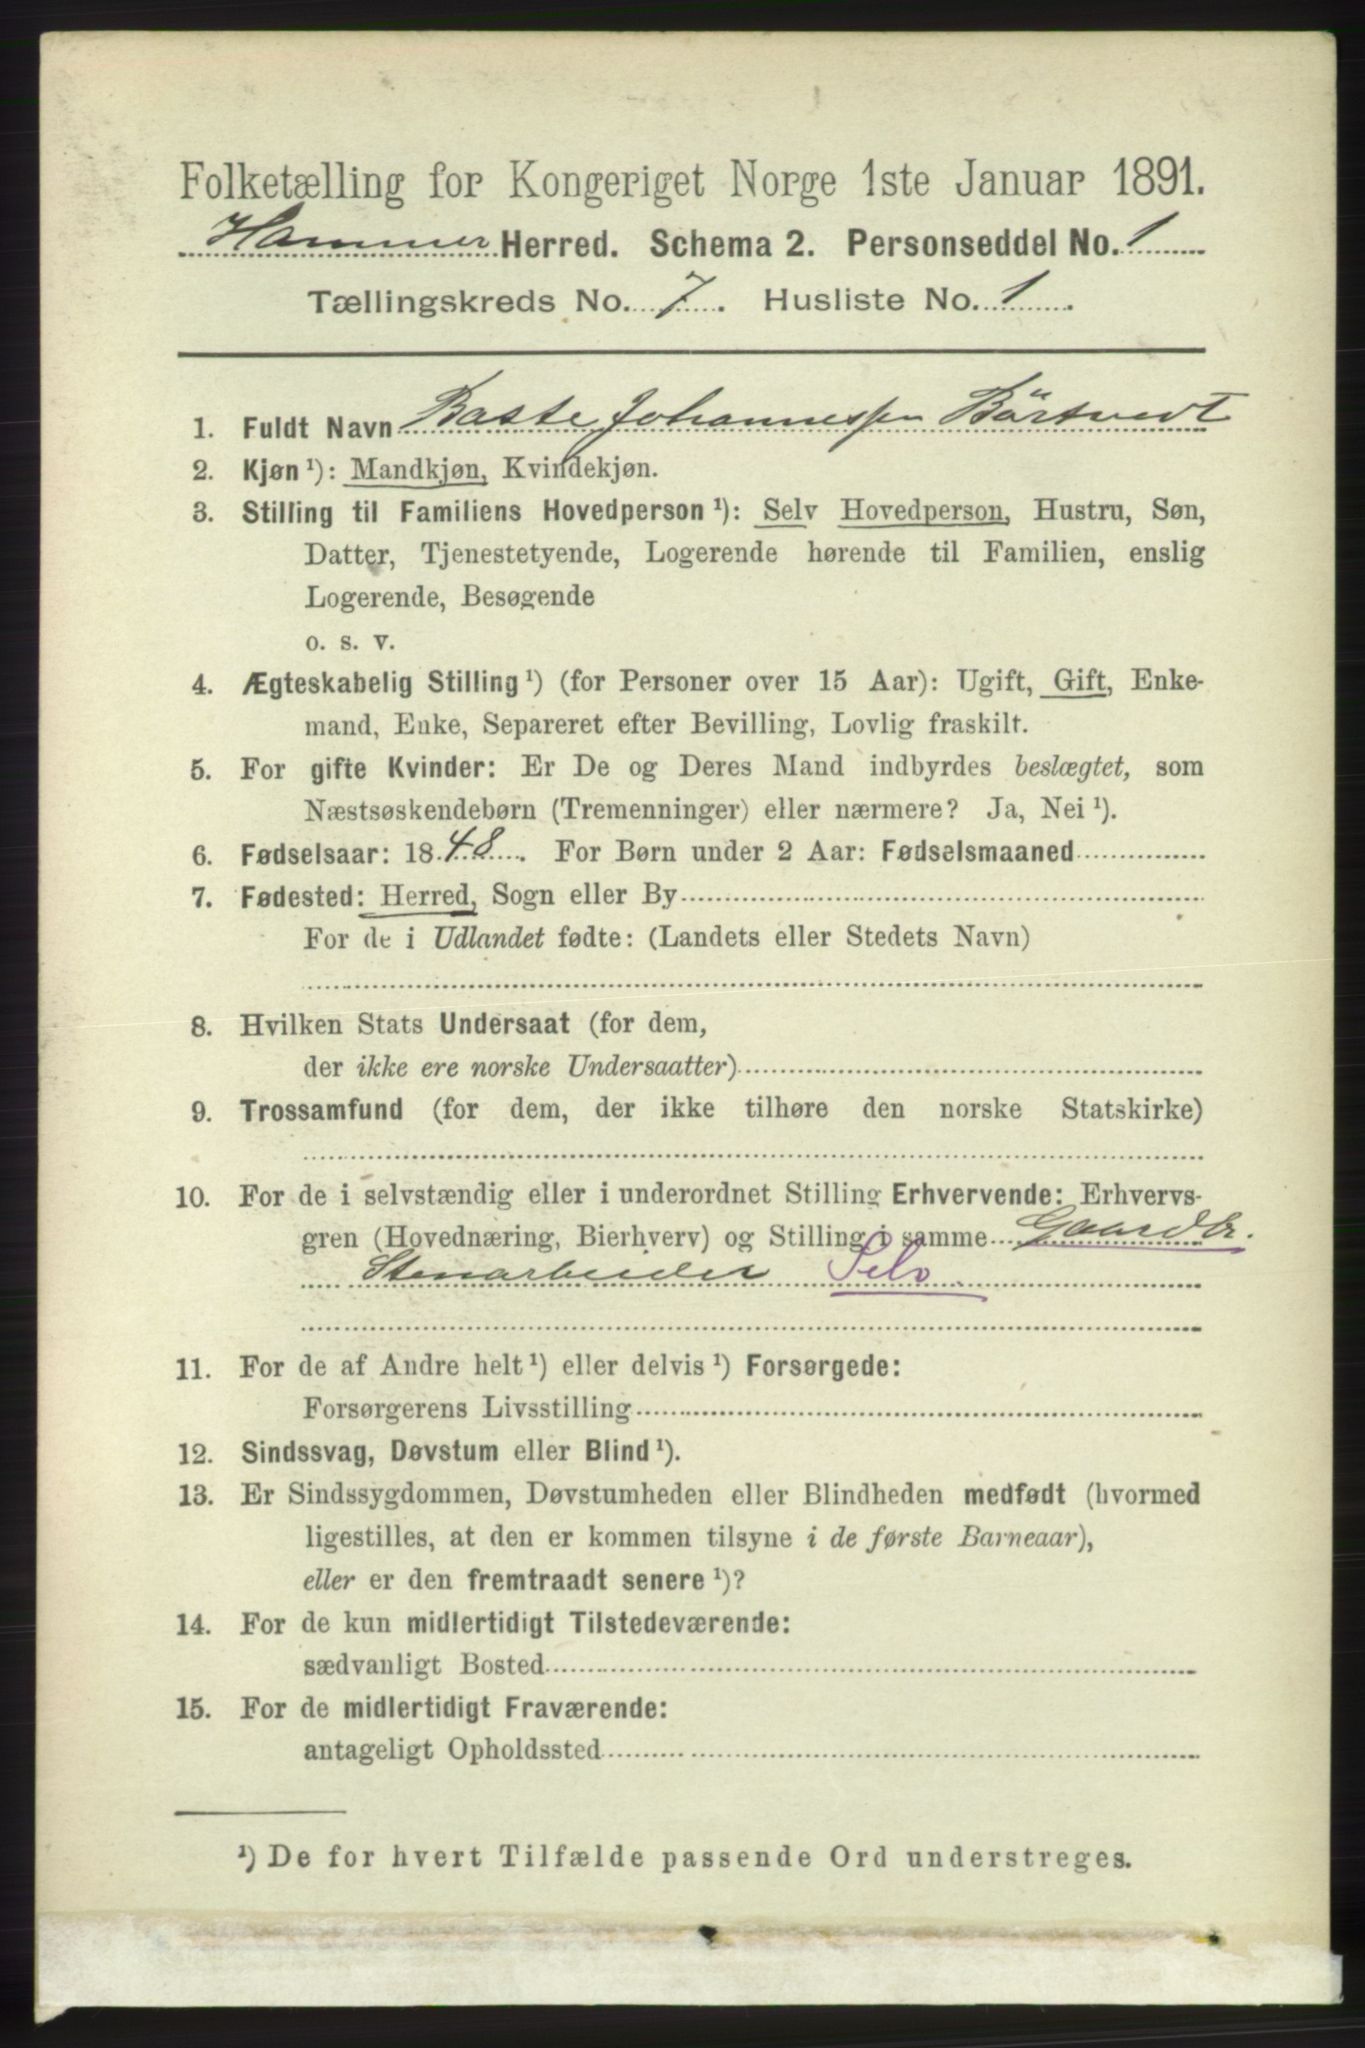 Folketælling for Kongeriget Norge 1ste Januar 1891.
Hammer Herred. Schema 2. Personseddel No. 1
Tællingskreds No. 7. Husliste No. 1.
1. Fuldt Navn Baste Johannessen Börtvedt
2. Kjøn¹): Mandkjøn, Kvindekjøn.
3. Stilling til Familiens Hovedperson¹): Selv Hovedperson, Hustru, Søn,
Datter, Tjenestetyende, Logerende hørende til Familien, enslig
Logerende, Besøgende
o. s. v.
4. Ægteskabelig Stilling¹) (for Personer over 15 Aar): Ugift, Gift, Enke-
mand, Enke, Separeret efter Bevilling, Lovlig fraskilt.
5. For gifte Kvinder: Er De og Deres Mand indbyrdes beslægtet, som
Næstsøskendebørn (Tremenninger) eller nærmere? Ja, Nei¹).
6. Fødselsaar: 1848. For Børn under 2 Aar: Fødselsmaaned
7. Fødested: Herred, Sogn eller By
For de i Udlandet fødte: (Landets eller Stedets Navn)
8. Hvilken Stats Undersaat (for dem,
der ikke ere norske Undersaatter)
9. Trossamfund (for dem, der ikke tilhøre den norske Statskirke)
10. For de i selvstændig eller i underordnet Stilling Erhvervende: Erhvervs-
gren (Hovednæring, Bierhverv) og Stilling i samme Gaardbr.
Stenarbeider Selv.
11. For de af Andre helt¹) eller delvis¹) Forsørgede:
Forsørgerens Livsstilling
12. Sindssvag, Døvstum eller Blind¹).
13. Er Sindssygdommen, Døvstumheden eller Blindheden medfødt (hvormed
ligestilles, at den er kommen tilsyne i de første Barneaar),
eller er den fremtraadt senere¹)?
14. For de kun midlertidigt Tilstedeværende:
sædvanligt Bosted
15. For de midlertidigt Fraværende:
antageligt Opholdssted
¹) De for hvert Tilfælde passende Ord understreges.